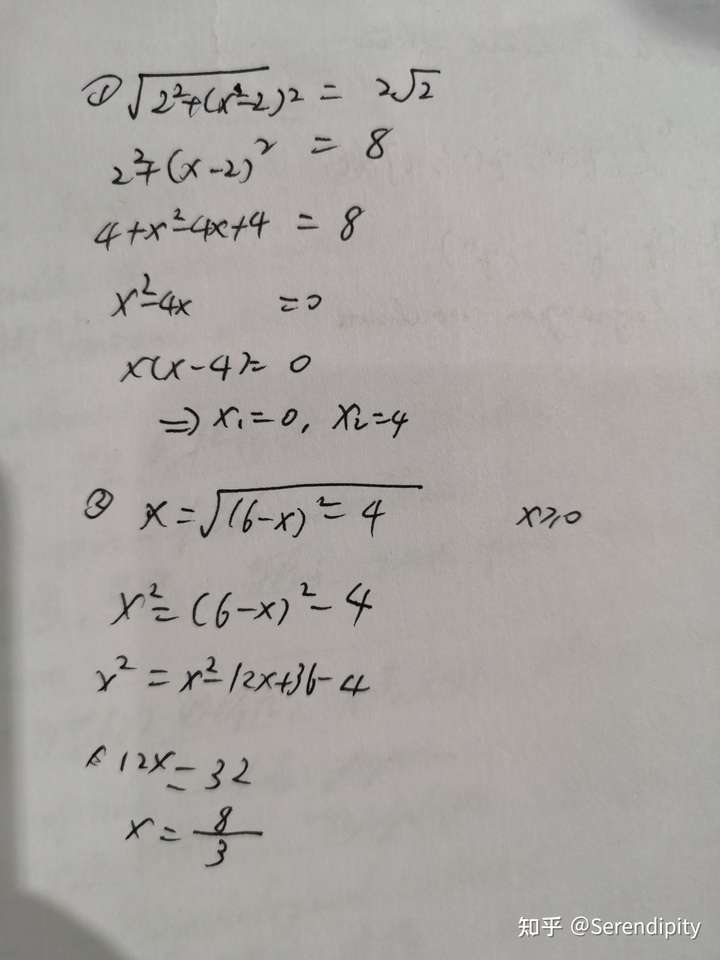 ① √(2²+(x-2)²) = 2√2
2²+(x-2)² = 8
4+x²-4x+4 = 8
x²-4x =0
x(x-4)= 0
=> x₁=0, x₂=4
② x=√((6-x)²-4) x≥0
x²=(6-x)²-4
x²=x²-12x+36-4
12x=32
x=8/3
知乎 @Serendipity